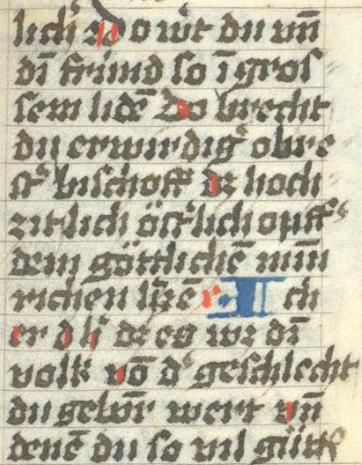 lich Do wͤr du vn̄
dī fründ so ī gros
sem lidē Do brecht
du erwirdigͬ obre
stͬ bischoff dz hoch
zitlich östͬlich opffͬ
dem göttlichē mīn
richen hͬzē
dz es wz dī
volk vō dͬ geschlecht
du wert vn̄
denē du so vil gütt